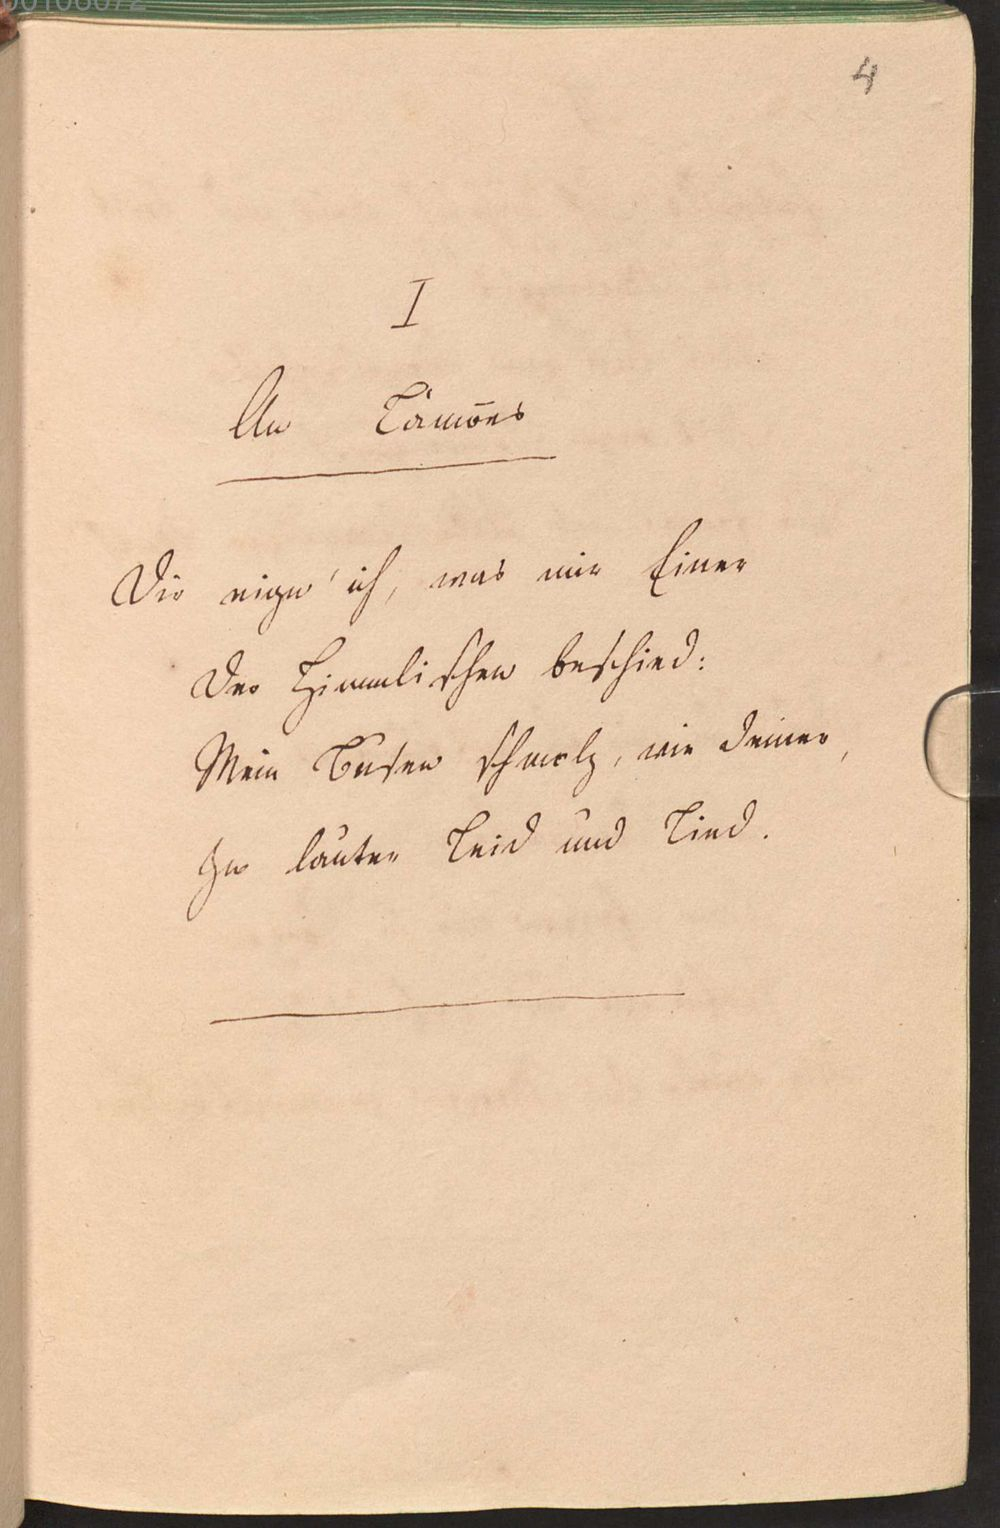 4
I
An Camoens
Dir eign' ich, was mir Einer
Der Himmlischen beschied:
Mein Busen schmolz, wie deiner,
In lauter Leid und Lied.